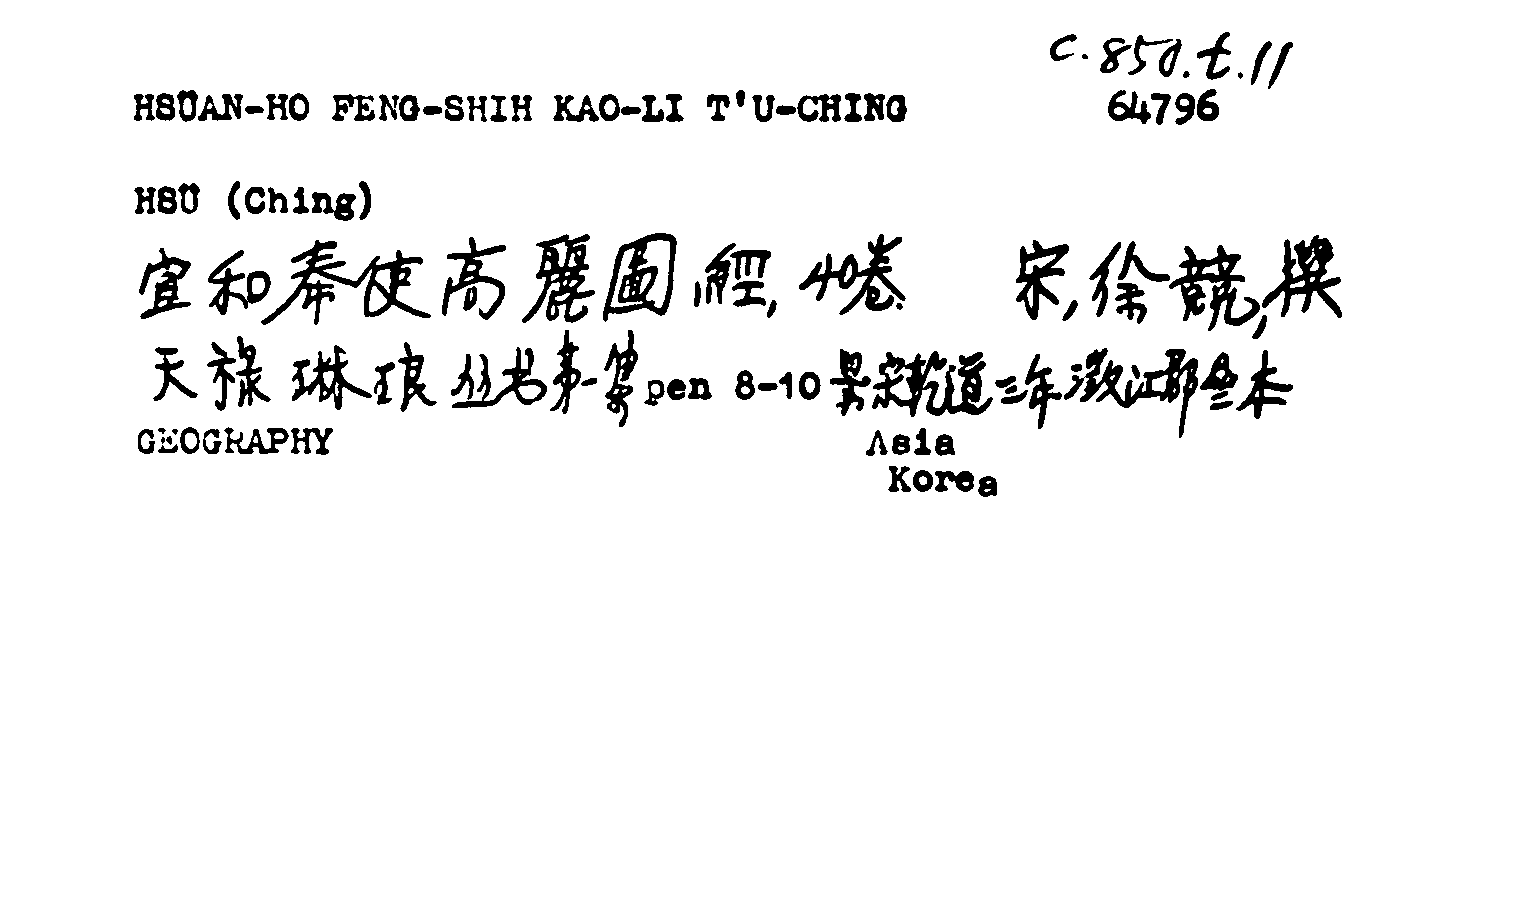 c.850.t.11
HSÜAN-HO FENG-SHIH KAO-LI T'U-CHING 64796
HSÜ (Ching)
宣和奉使高麗圖經, 40卷. 宋, 徐兢, 撰
天祿琳琅丛书第一集 pen 8-10 景宋乾道三年澂江郡叁本
GEOGRAPHY Asia
Korea